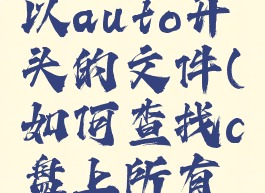 以auto开
头的文件(
如何查找c
盘上所有